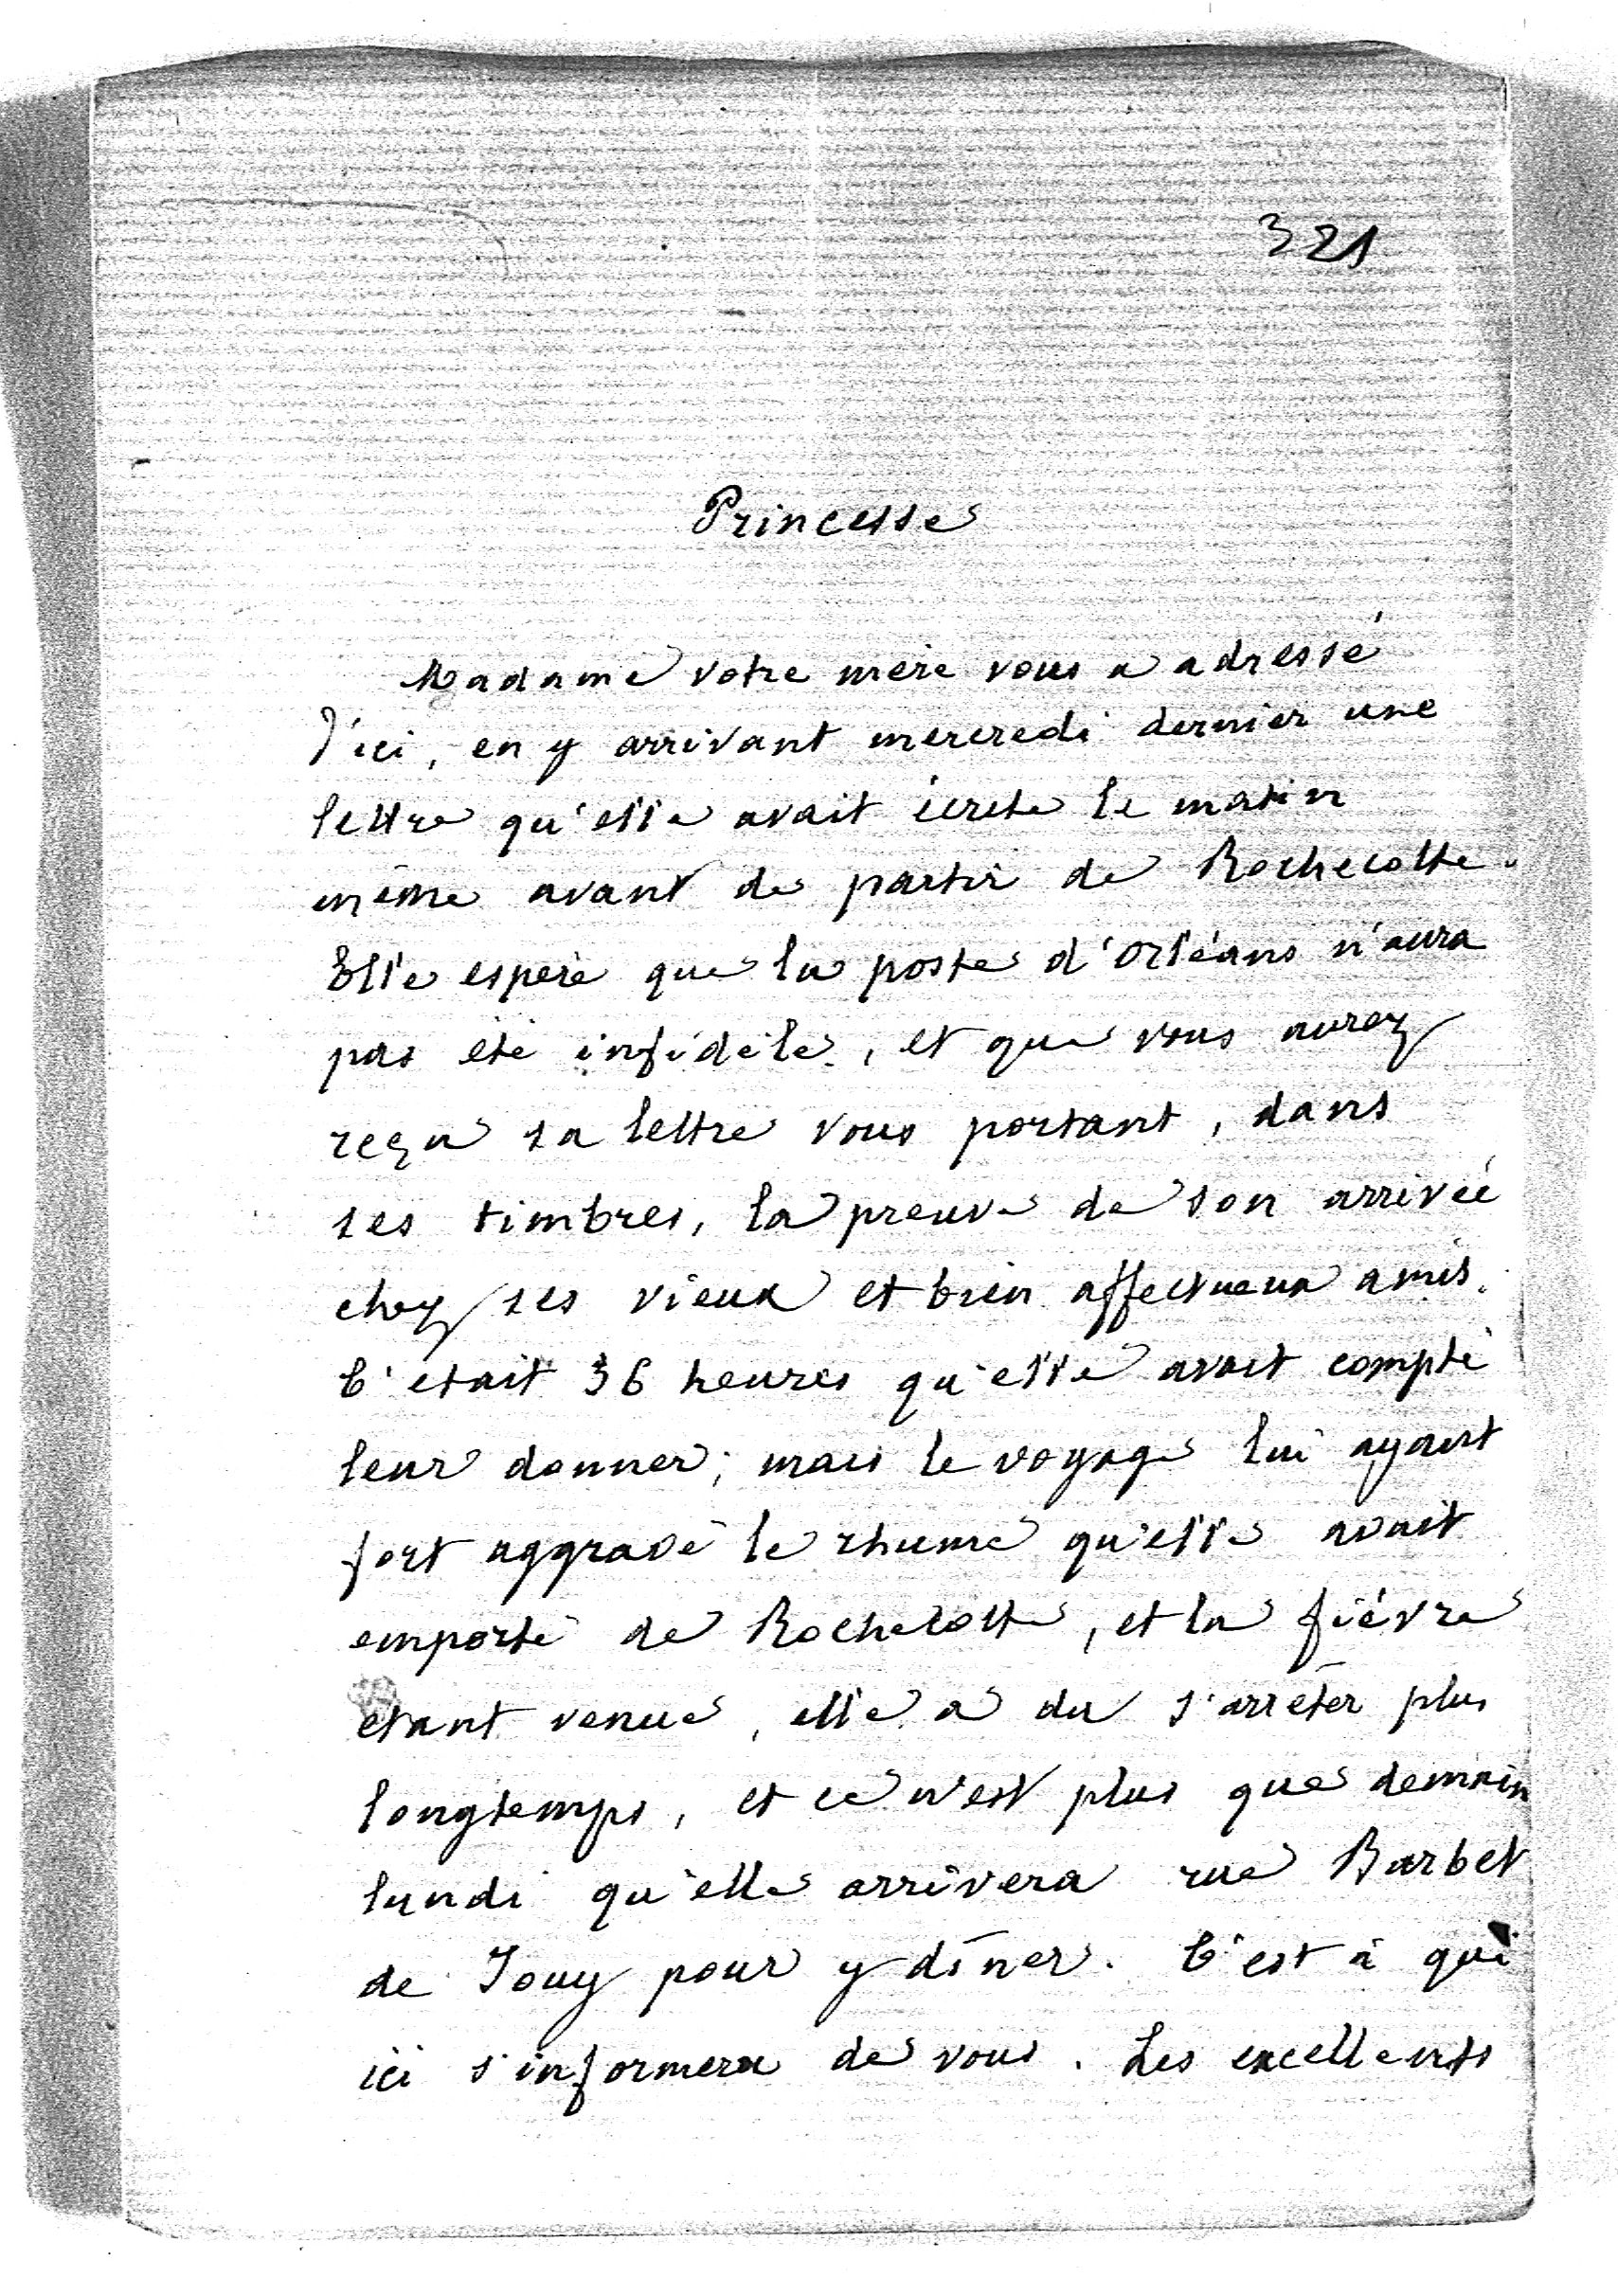 321
Princesse
Madame votre mère vous a adressé
d'ici, en y arrivant mercredi dernier une
lettre qu'elle avait écrite le matin
même avant de partir de Rochecotte.
Elle espère que la poste d'Orléans n'aura
pas été infidèle, et que vous aurez
reçu sa lettre vous portant, dans
ses timbres, la preuve de son arrivée
chez ses vieux et bien affectueux amis.
C'était 36 heures qu'elle avait compté
leur donner; mais le voyage lui ayant
fort aggravé le rhume qu'elle avait
emporté de Rochecotte, et la fièvre
étant venue, elle a du s'arrêter plus
longtemps, et ce n'est plus que demain
lundi qu'elle arrivera rue Barbet
de Jouy pour y dîner. C'est à qui
ici s'informera de vous. Les excellents